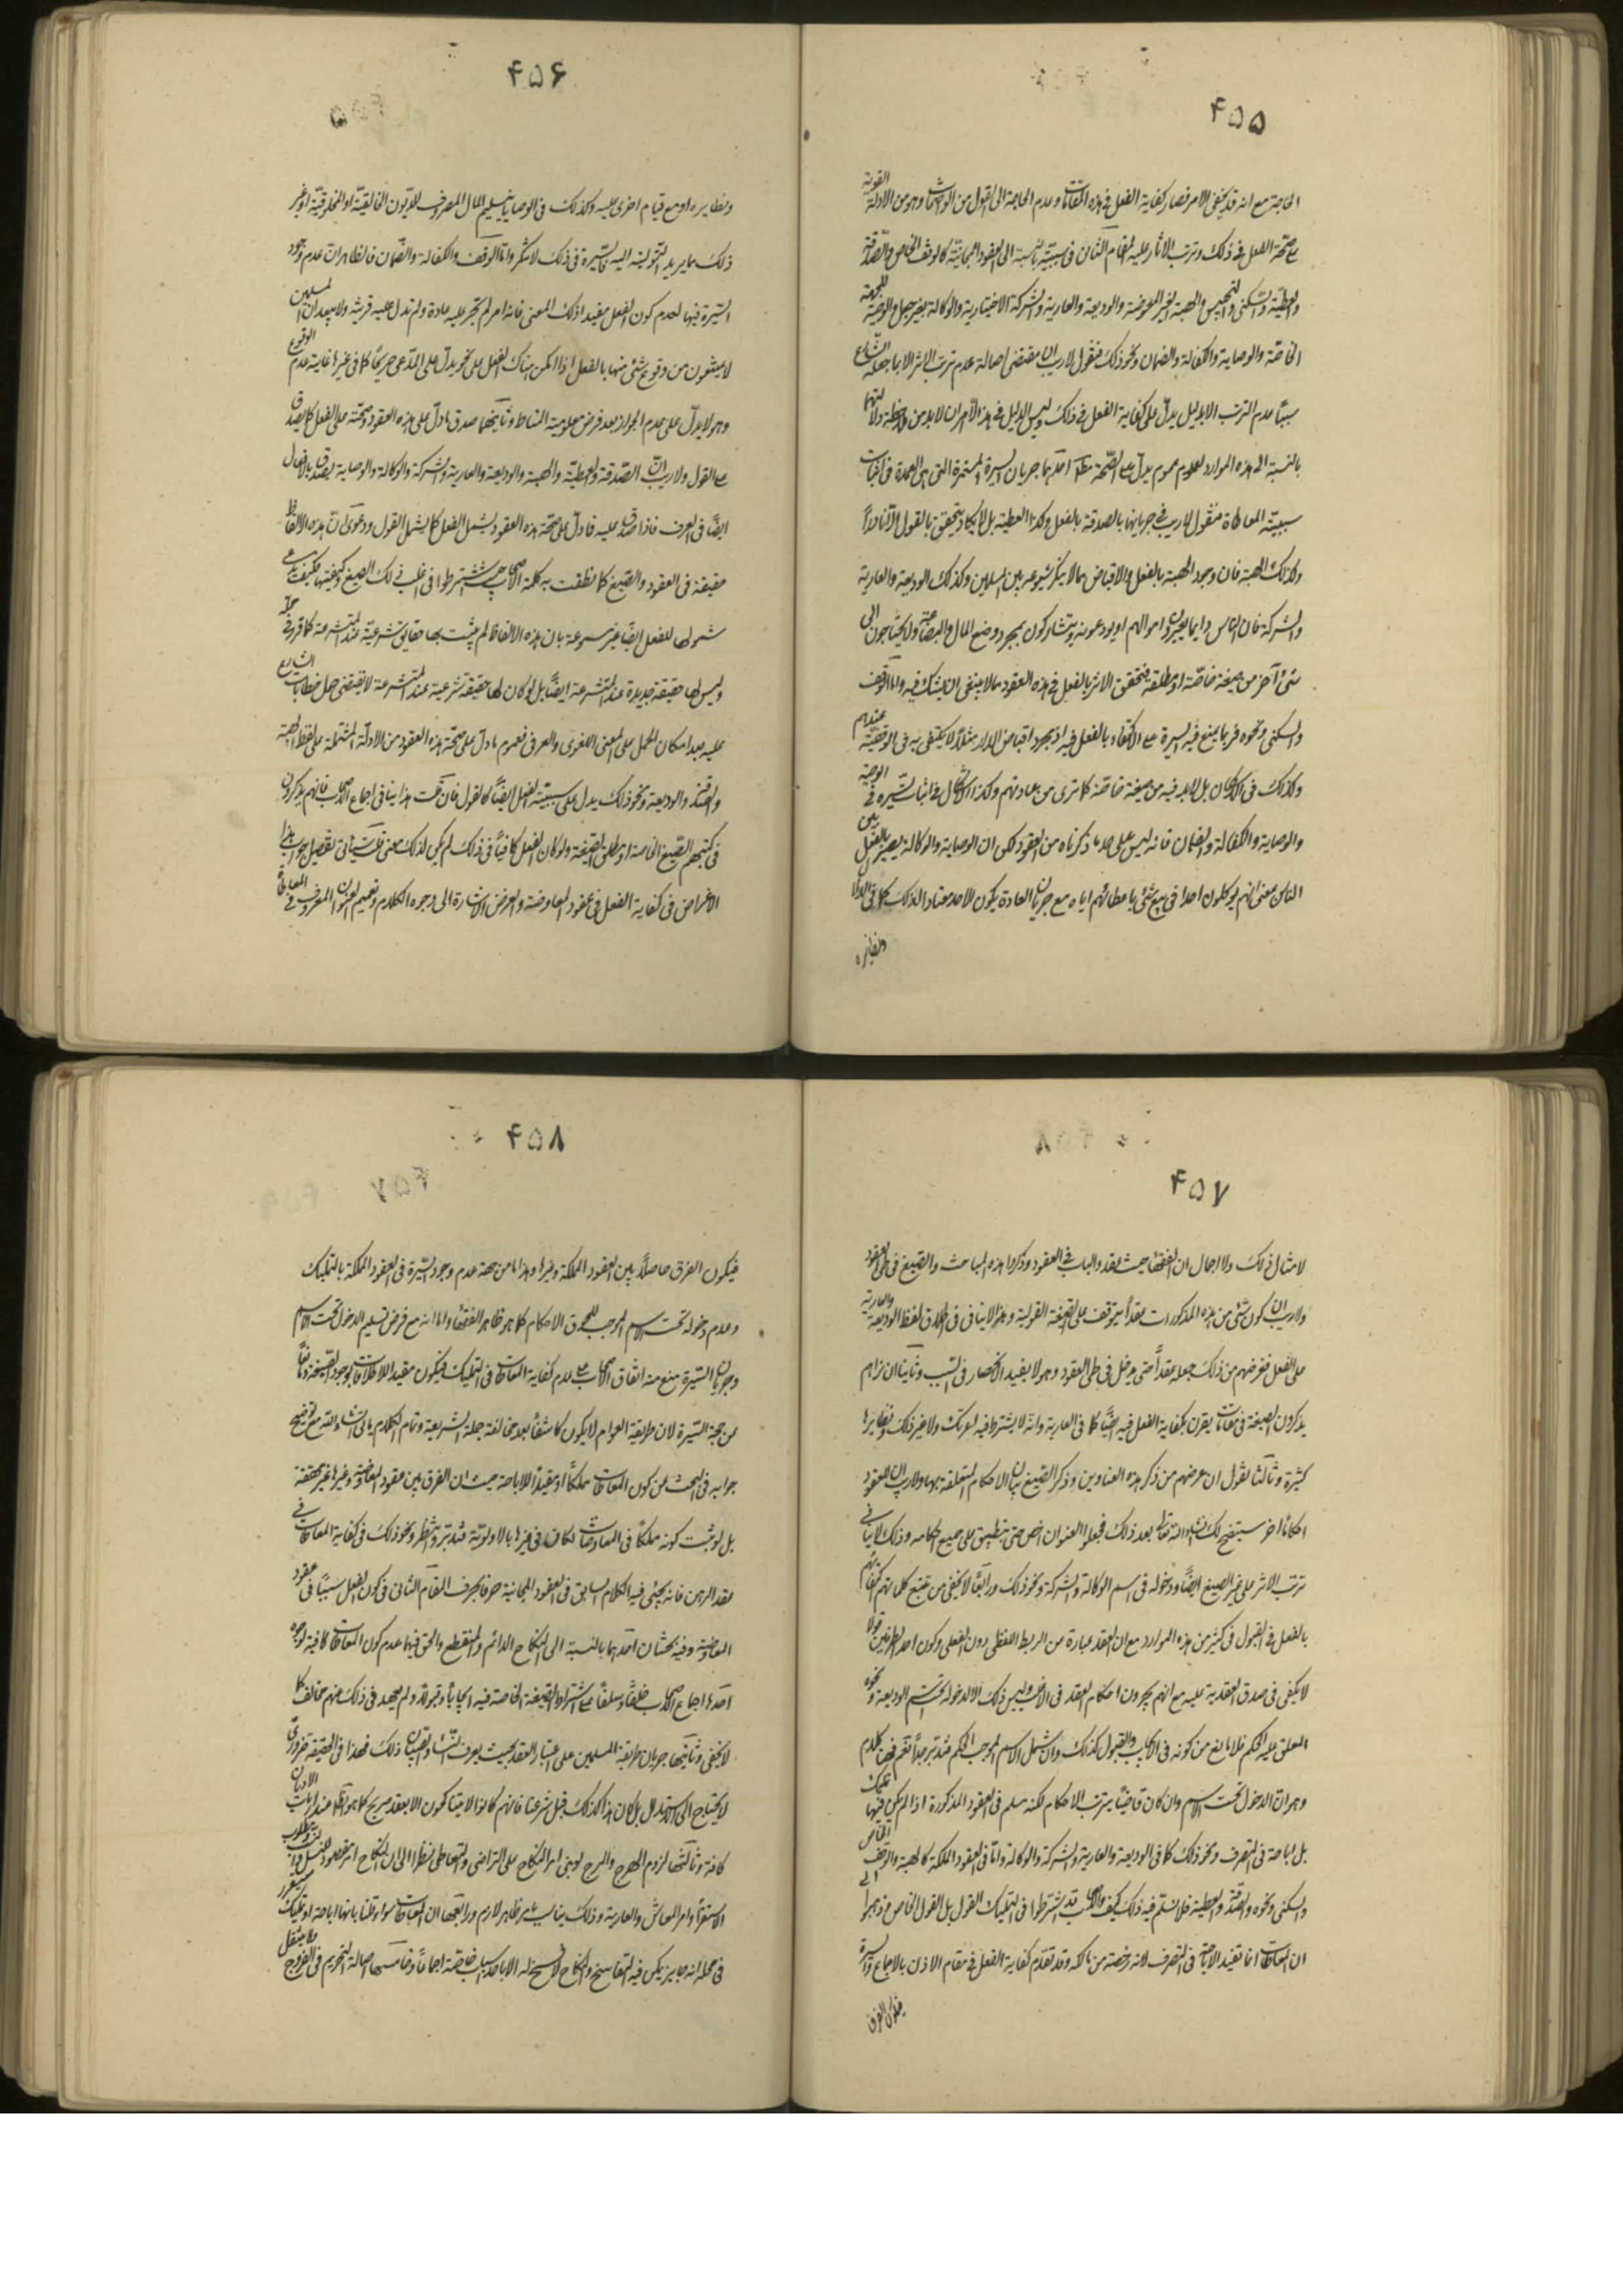 ۴۵۵
الحاجة مع انه قد يكفى الامر فصار كفاية الفعل فى هذه المقامات وعدم الحاجة الى القول من الواضحات وهو من الادلة القوية
على صحة الفعل فى ذلك وترتب الاثار عليه المقام الثانى فى سببيته بالنسبة الى العقود المجانية كالوقف الخاص والصدقة
والعطية والسكنى والتحبيس والهبة الغير المعوضة والوديعة والعارية والشركة الاختيارية والوكالة بغير جعل والوصية للجهة
الخاصة والوصاية والكفالة والضمان ونحو ذلك فنقول لا ريب ان مقتضى اصالة عدم ترتب الاثر الا بما جعله الشارع
سببا عدم الترتب الا بدليل يدل على كفاية الفعل فى ذلك وليس الدليل فى هذا الامران لابد من ملاحظة دلالتهما
بالنسبة الى هذه الموارد لعدم عموم يدل على الصحة مطلقا احدهما جريان السيرة المستمرة التى هى العمدة فى اثبات
سببية المعاطاة فنقول لا ريب فى جريانها بالصدقة بالفعل وكذا العطية بل لا يكاد يتحقق بالقول الا نادرا
وكذلك الهبة فان وجود الهبة بالفعل والاقباض مما لا ينكر شيوعه بين المسلمين وكذلك الوديعة والعارية
والشركة فان الناس دايما يعيرون اموالهم او يودعونه ويتشاركون بمجرد وضع المال والبضاعة ولا يحتاجون الى
شئ آخر من صيغة خاصة او مطلقة فتحقق الاثر بالفعل فى هذه العقود مما لا ينبغى ان يشك فيه واما الوقف
والسكنى ونحوه فربما يمنع فيه السيرة على الاكتفاء بالفعل فيه اذ بمجرد اقباض الدار مثلا لا يكتفى به فى الوقفية عندهم
وكذلك فى الاسكان بل لابد فيه من صيغة خاصة كما ترى من عادتهم وكذا الاشكال فى اثبات السيرة فى الوصية
والوصاية والكفالة والضمان فانه ليس على حد ما ذكرناه من العقود لكن ان الوصاية والوكالة يصير بالفعل بين
الناس بمعنى انهم يوكلون احدا فى بيع شئ باعطائهم اياه مع جريان العادة بكون الاحد معتادا لذلك كما فى الدلال
ونظايره
۴۵۶
ونظايره او مع قيام اخرى عليه وكذلك فى الوصايا بتسليم المال المصروف للديون الخالقية او المخلوقية او غير
ذلك مما يريد التولية اليه فالسيرة فى ذلك لا تنكر واما الوقف والكفالة والضمان فالظاهر ان عدم وجود
السيرة فيها لعدم كون الفعل مفيدا ذلك المعنى فانه امر لم تجر عليه عادة ولم تدل عليه قرينة ولا يبعد ان المسلمين
لا يمنعون من وقوع شئ منها بالفعل اذا امكن هناك فعل على نحو يدل على المدعى صريحا كما فى غيرها غاية عدم الوقوع
وهو لا يدل على عدم الجواز بعد فرض معلومية المناط وثانيهما صدق ما دل على هذه العقود وصحته على الفعل كما يصدق
على القول ولا ريب ان الصدقة والعطية والهبة والوديعة والعارية والشركة والوكالة والوصاية يصدق بالافعال
ايضا فى العرف فاذا صدق عليه فما دل على صحة هذه العقود يشمل الفعل كما يشمل القول ودعوى ان هذه الالفاظ
حقيقة فى العقود والصيغ كما نطقت به كلمة الاصحاب حيث اشترطوا فى اغلب ذلك الصيغ وكيفيتها فكيف يدعى
شمولها للفعل ايضا غير مسموعة بان هذه الالفاظ لم يثبت بها حقايق شرعية عند المتشرعة كما قرر فى محله
وليس لها حقيقة جديدة عند المتشرعة ايضا بل لو كان لها حقيقة شرعية عند المتشرعة لا يقتضى حمل خطابات الشارع
عليه بعد امكان الحمل على المعنى اللغوى والعرفى فعموم ما دل على صحة هذه العقود من الادلة المشتملة على لفظ الهبة
والصدقة والوديعة ونحو ذلك يدل على سببية الفعل ايضا كالقول فان قلت هذا ينافى اجماع الاصحاب فانهم يذكرون
فى كتبهم الصيغ الخاصة او مطلق الصيغة ولو كان الفعل كافيا فى ذلك لم يكن لذلك معنى قلت سيأتى تفصيل جواب هذا
الاعتراض فى كفاية الفعل فى عقود المعاوضة والغرض الاشارة الى وجوه الكلام وتعميم العنوان المعروف فى المعاطاة
۴۵۷
لامثال ذلك والاجمال ان الفقهاء حيث عقدوا الباب فى العقود وذكروا هذه المباحث والصيغ فى طى العقود
ولا ريب ان كون شئ من هذه المذكورات عقدا يتوقف على الصيغة القولية وهذا لا ينافى فى اطلاق لفظ الوديعة والعارية
على الفعل فغرضهم من ذلك جعله عقدا حتى يدخل فى طى العقود وهو لا يفيد الانحصار فى السبب وثانيا ان نراهم
يذكرون الصيغة فى مقامات يقرن بكفاية الفعل فيه ايضا كما فى العارية وانه لا يشترط فيه لفرتك ولا غير ذلك ونظايرها
كثيرة وثالثا نقول ان غرضهم من ذكر هذه العناوين وذكر الصيغ بيان الاحكام المتعلقة بها ولا ريب ان للعقود
احكاما اخر سيتضح لك انشاء الله تعالى بعد ذلك فجعلوا العنوان اخص حتى ينطبق على جميع احكامه وذلك لا ينافى
ترتب الاثر على غير الصيغ ايضا ودخوله فى اسم الوكالة والشركة ونحو ذلك ورابعا لا يخفى من تتبع كلماتهم اكتفائهم
بالفعل فى القبول فى كثير من هذه الموارد مع ان العقد عبارة عن الربط اللفظى دون الفعلى وكون احد الطرفين قولا
لا يكفى فى صدق العقدية عليه مع انهم يجرون احكام العقد فى الاغلب وليس ذلك الا لدخوله تحت اسم الوديعة ونحوه
المعلق عليه الحكم فلا مانع من كونه فى الايجاب والقبول كذلك وان شمل الاسم الموجب للحكم فتدبر جدا نعم فهنا كلام
وهو ان الدخول تحت الاسم وان كان قاضيا بترتب الاحكام لكنه مسلم فى العقود المذكورة اذا لم يكن فيها تمليك
بل اباحة فى التصرف ونحو ذلك كما فى الوديعة والعارية والشركة والوكالة واما فى العقود المملكة كالهبة والوقف الخاص
والسكنى ونحوه والصدقة والعطية فلا نسلم فيه ذلك كيف والاصحاب قد اشترطوا فى التمليك القول بل القول الخاص وذهبوا الى
ان المعاطاة انما تفيد الاباحة فى التصرف لانه رخصة من مالكه وقد تقدم كفاية الفعل فى مقام الاذن بالاجماع والسيرة
فيكون الفرق
۴۵۸
فيكون الفرق حاصلا بين العقود المملكة وغيرها وهذا اما من جهة عدم وجود السيرة فى العقود المملكة بالتمليك
وعدم دخوله تحت الاسم الموجب للحوق الاحكام كما هو ظاهر الفقهاء واما انه مع فرض تسليم الدخول تحت الاسم
وجريان السيرة منع منه اتفاق الاصحاب على عدم كفاية المعاطاة فى التمليك فيكون مقيدا للاطلاقات بوجود الصيغة ومانعا
عن حجية السيرة لان طريقة العوام لا يكون كاشفا بعد مخالفة حملة الشريعة وتمام الكلام يأتى انشاء الله مع توضيح
جوابه فى البحث عن كون المعاطاة مملكا او مفيدا للاباحة حيث ان الفرق بين عقود المعاوضة وغيرها غير محققة
بل لو ثبت كونه مملكا فى المعاوضات لكان فى غيرها بالاولوية فتدبر وانتظر ونحو ذلك فى كفاية المعاطاة فى
عقد الرهن فانه يجئ فيه الكلام السابق فى العقود المجانية حرفا بحرف المقام الثانى فى كون الفعل سببا فى عقود
المعاوضة وفيه بحثان احدهما بالنسبة الى النكاح الدائم والمنقطع والحق فيهما عدم كون المعاطاة كافية لوجوه
احدها اجماع الاصحاب خلفا وسلفا على اشتراط الصيغة الخاصة فيه ايجابا وقبولا ولم يعهد فى ذلك منهم مخالف كما
لا يخفى وثانيها جريان طريقة المسلمين على اعتبار العقد بحيث يعرف النساء والصبيان ذلك فهذا فى الحقيقة ضرورى
لا يحتاج الى الاستدلال بل كان هذا كذلك قبل شرعنا فانهم كانوا لا يتناكحون الا بعقد صريح كما هو ظاهر عند ارباب الاديان
كافة وثالثها لزوم الهرج والمرج لو بنى امر النكاح على التراضى والتعاطى نظرا الى ان النكاح امر مقصود للنسل
الاستقراء وامر المعاش والعارية وذلك يناسبه امر ظاهر لازم ورابعها ان المعاطاة سواء قلنا بانها اباحة او تمليك
فى محله انه جايز يمكن فيه التفاسخ والنكاح لا فسخ له الا باسباب خاصة اجماعا وخامسها اصالة التحريم فى الفروج